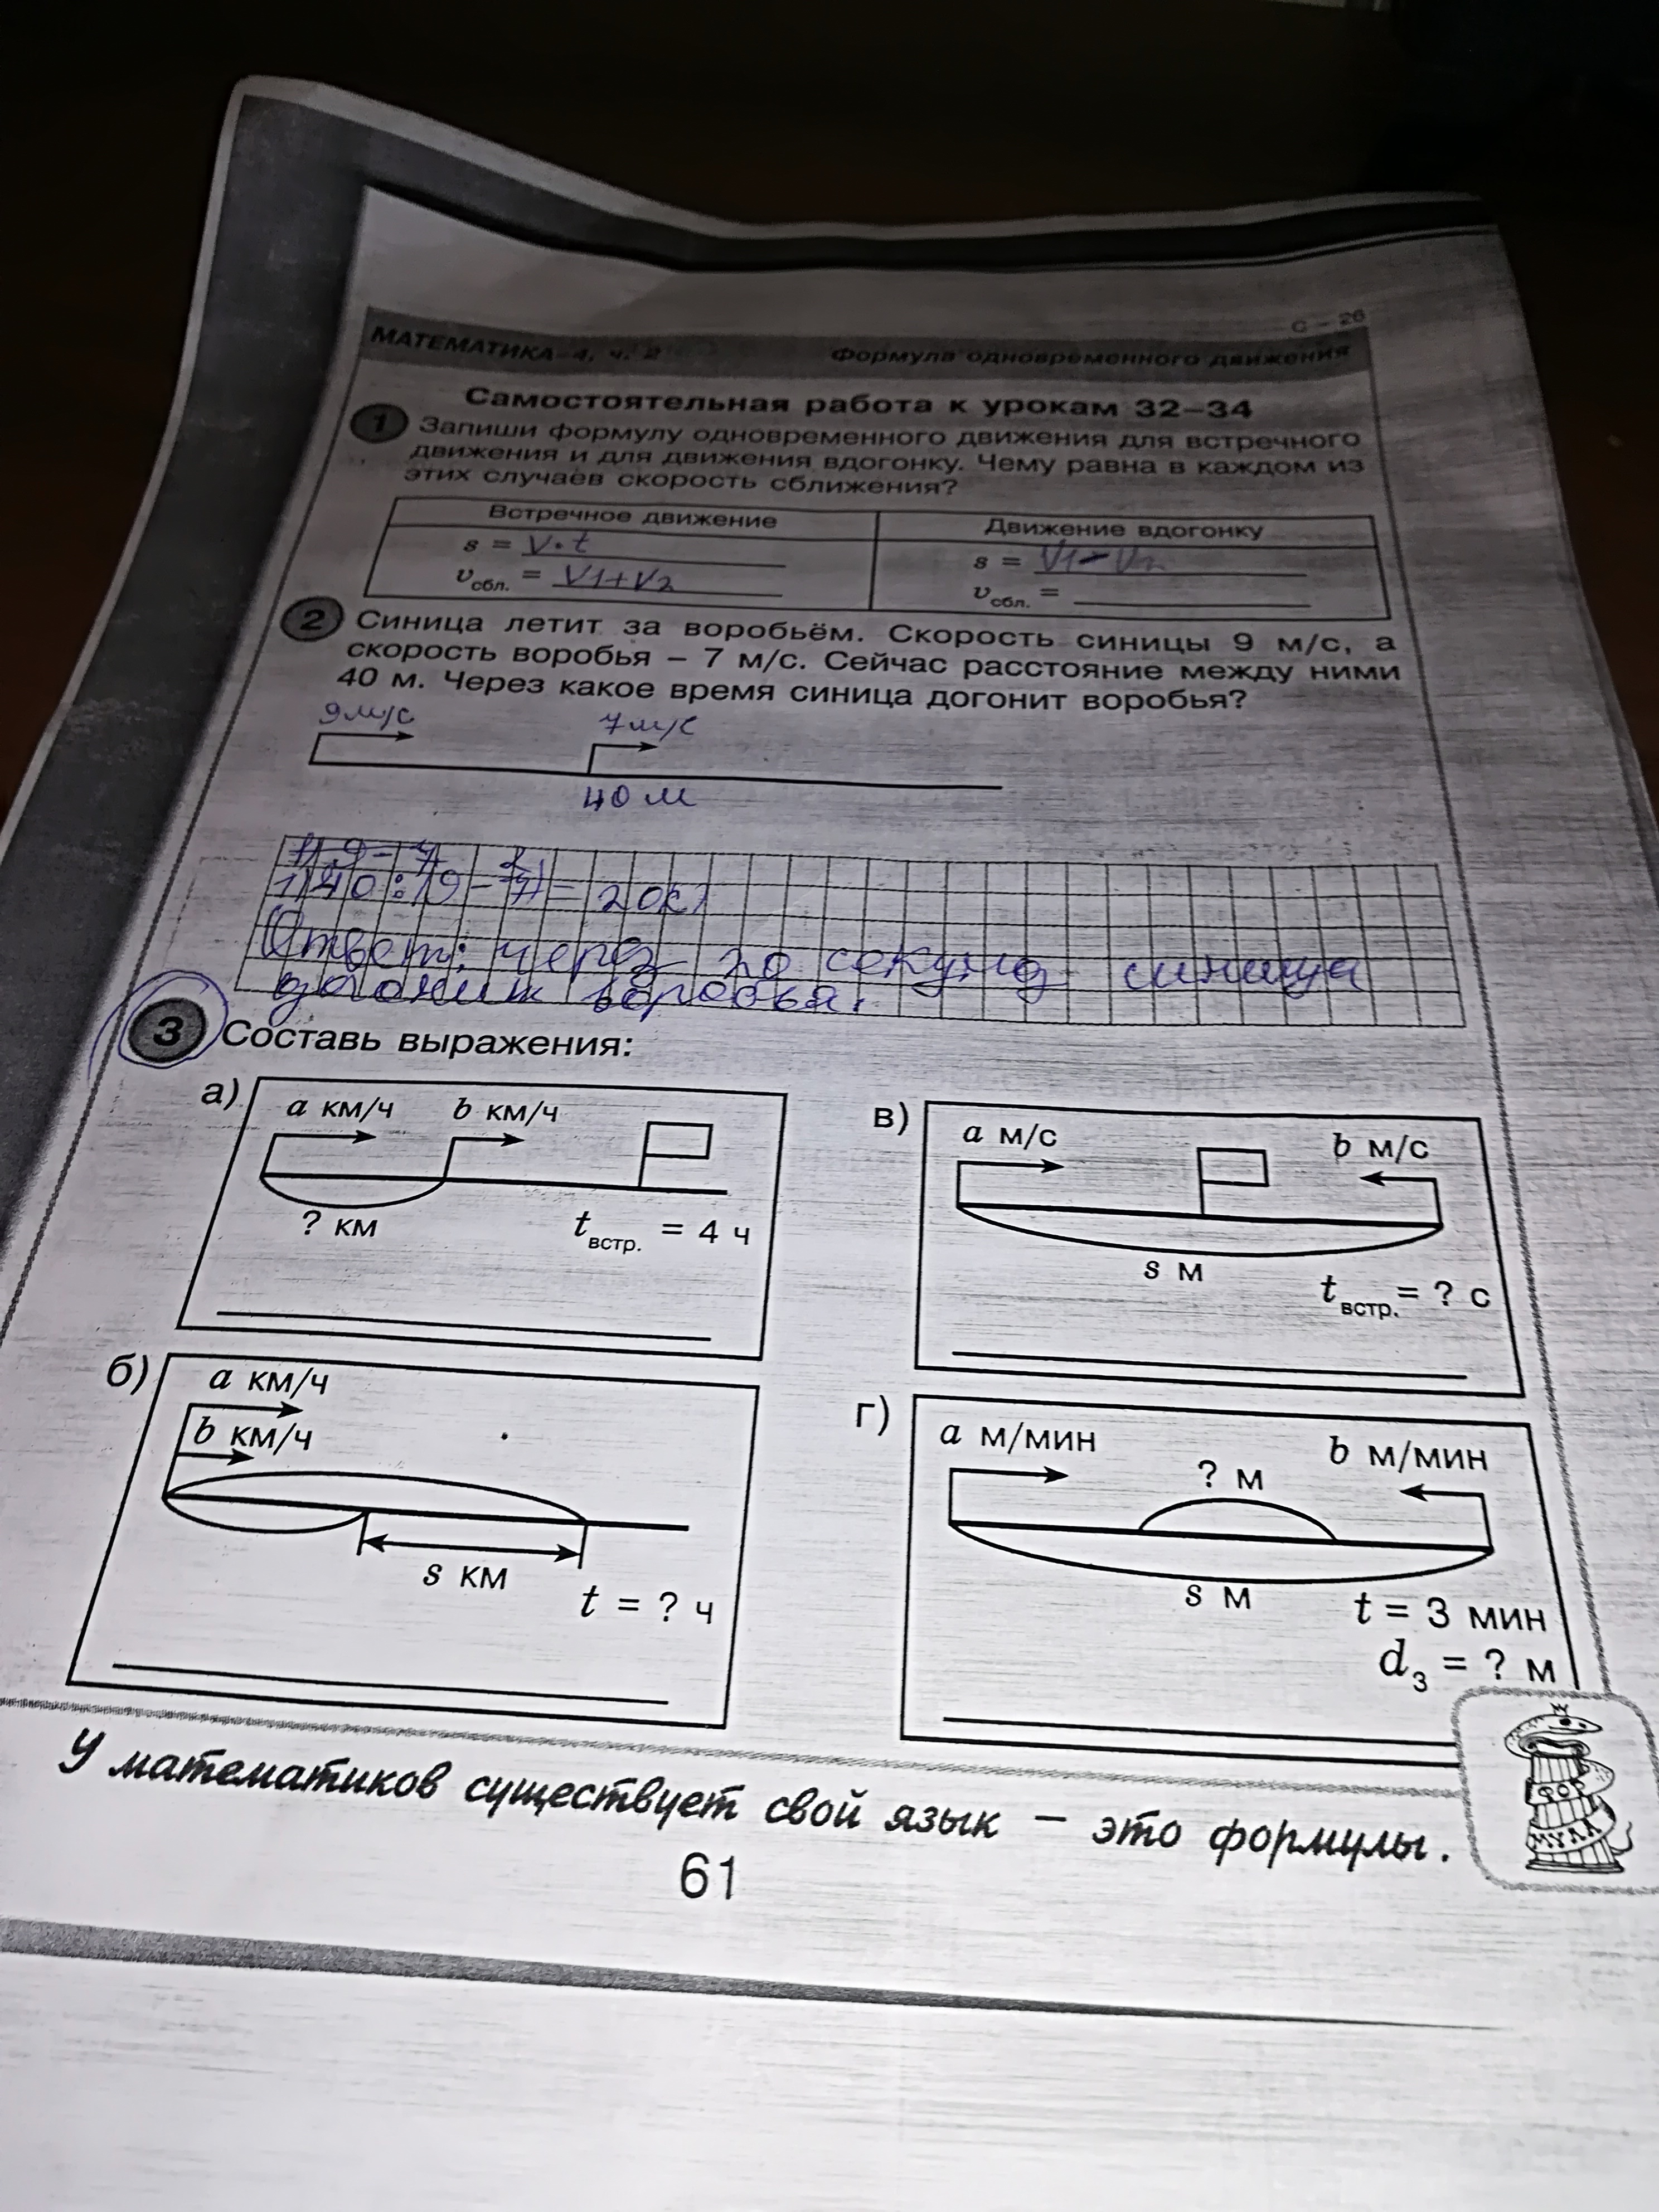 С – 26
МАТЕМАТИКА–4, ч. 2 Формула одновременного движения
Самостоятельная работа к урокам 32–34
1 Запиши формулу одновременного движения для встречного
движения и для движения вдогонку. Чему равна в каждом из
этих случаев скорость сближения?
Встречное движение Движение вдогонку
s = V·t s = V1 - V2
υсбл. = V1+V2 υсбл. =
2 Синица летит за воробьём. Скорость синицы 9 м/с, а
скорость воробья – 7 м/с. Сейчас расстояние между ними
40 м. Через какое время синица догонит воробья?
9м/с 7м/с
40 м
1) 9 - 7
1) 40:(9-7)= 20с)
Ответ: через 20 секунд синица
догонит воробья.
3 Составь выражения:
а) a км/ч b км/ч
? км tвстр. = 4 ч
в) a м/с b м/с
s м tвстр. = ? с
б) a км/ч
b км/ч
s км t = ? ч
г) a м/мин ? м b м/мин
s м t = 3 мин
d3 = ? м
У математиков существует свой язык – это формулы.
ФОР
МУЛА
61